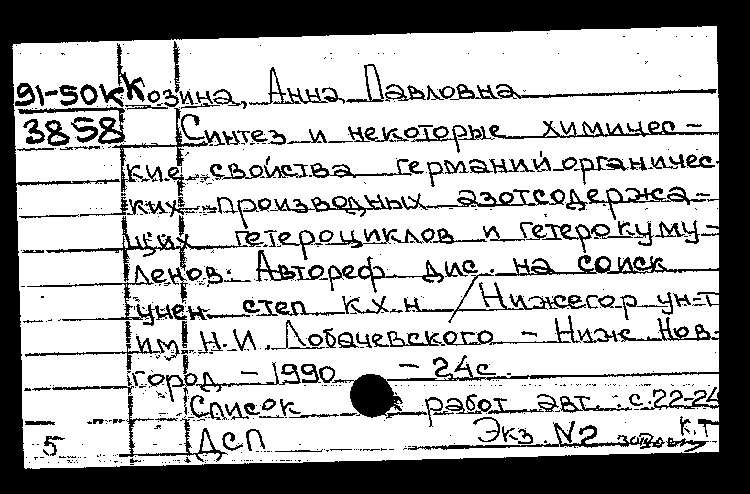 91-50К Козина, Анна Павловна
3858 Синтез и некоторые химичес-
кие свойства германийорганичес
ких производных азотсодержа-
щих гетероциклов и гетерокуму-
ленов: Автореф. дис. на соиск
учен. степ к.х.н / Нижегор ун-т
им Н.И. Лобачевского - Ниж. Нов-
город, - 1990 - 24с.
Список работ авт.: с.22-24
5 ДСП Экз. N2 К.Т